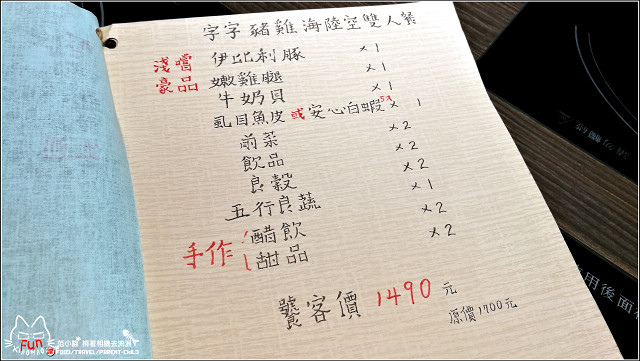 字字豬雞海陸空雙人餐
淺嚐
豪品
伊比利豚 x1
嫩雞腿 x1
牛奶貝 x1
虱目魚皮或安心白蝦5入 x1
前菜 x2
飲品 x2
良穀 x2
五行良蔬 x1
手作
醋飲 x2
甜品 x2
饕客價 1490元
原價1700元
用後面
Fun
FOOD/TRAVEL/PARENT-CHILD